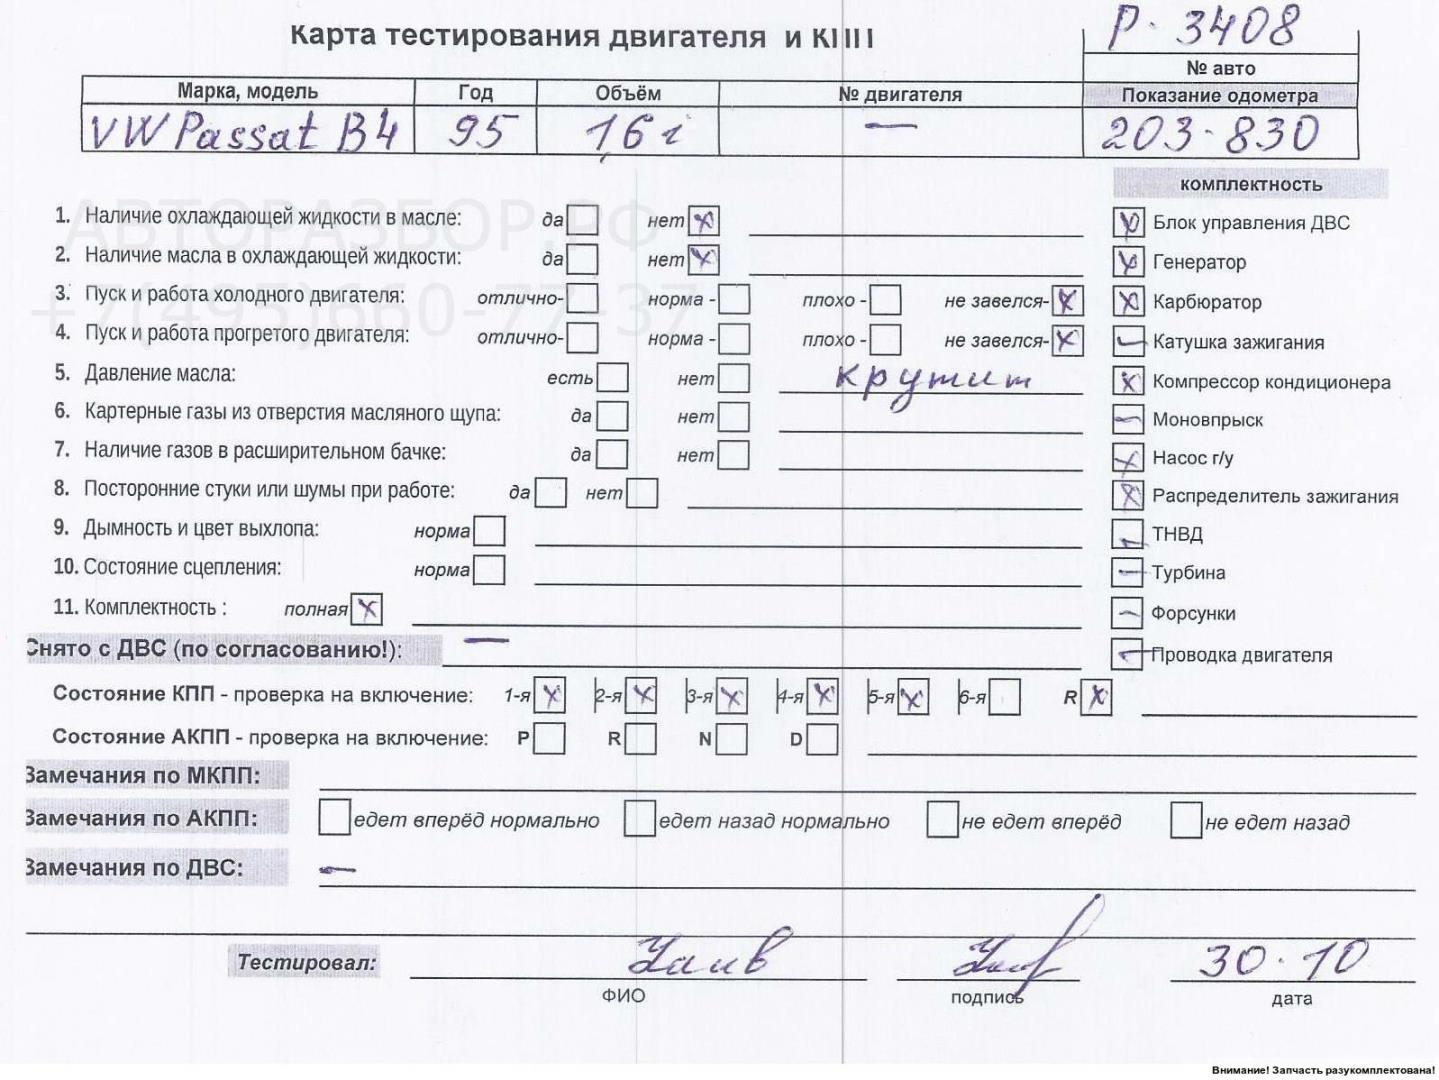 Карта тестирования двигателя и КПП
Р-3408
№ авто
Марка, модель Год Объём № двигателя Показание одометра
VW Passat B4 95 1,6 i — 203-830
АВТОРАЗБОР.РФ
+7(495)660-77-37
комплектность
1. Наличие охлаждающей жидкости в масле: да нет x
Блок управления ДВС
2. Наличие масла в охлаждающей жидкости: да нет x
Генератор
3. Пуск и работа холодного двигателя: отлично- норма - плохо - не завелся- x
Карбюратор
4. Пуск и работа прогретого двигателя: отлично- норма - плохо - не завелся- x
Катушка зажигания
5. Давление масла: есть нет крутит
Компрессор кондиционера
6. Картерные газы из отверстия масляного щупа: да нет
Моновпрыск
7. Наличие газов в расширительном бачке: да нет
Насос г/у
8. Посторонние стуки или шумы при работе: да нет
Распределитель зажигания
9. Дымность и цвет выхлопа: норма
ТНВД
10. Состояние сцепления: норма
Турбина
11. Комплектность : полная x
Форсунки
Снято с ДВС (по согласованию!): —
Проводка двигателя
Состояние КПП - проверка на включение: 1-я x 2-я x 3-я x 4-я x 5-я x 6-я R x
Состояние АКПП - проверка на включение: P R N D
Замечания по МКПП:
Замечания по АКПП: едет вперёд нормально едет назад нормально не едет вперёд не едет назад
Замечания по ДВС: —
Тестировал: 30.10
ФИО подпись дата
Внимание! Запчасть разукомплектована!